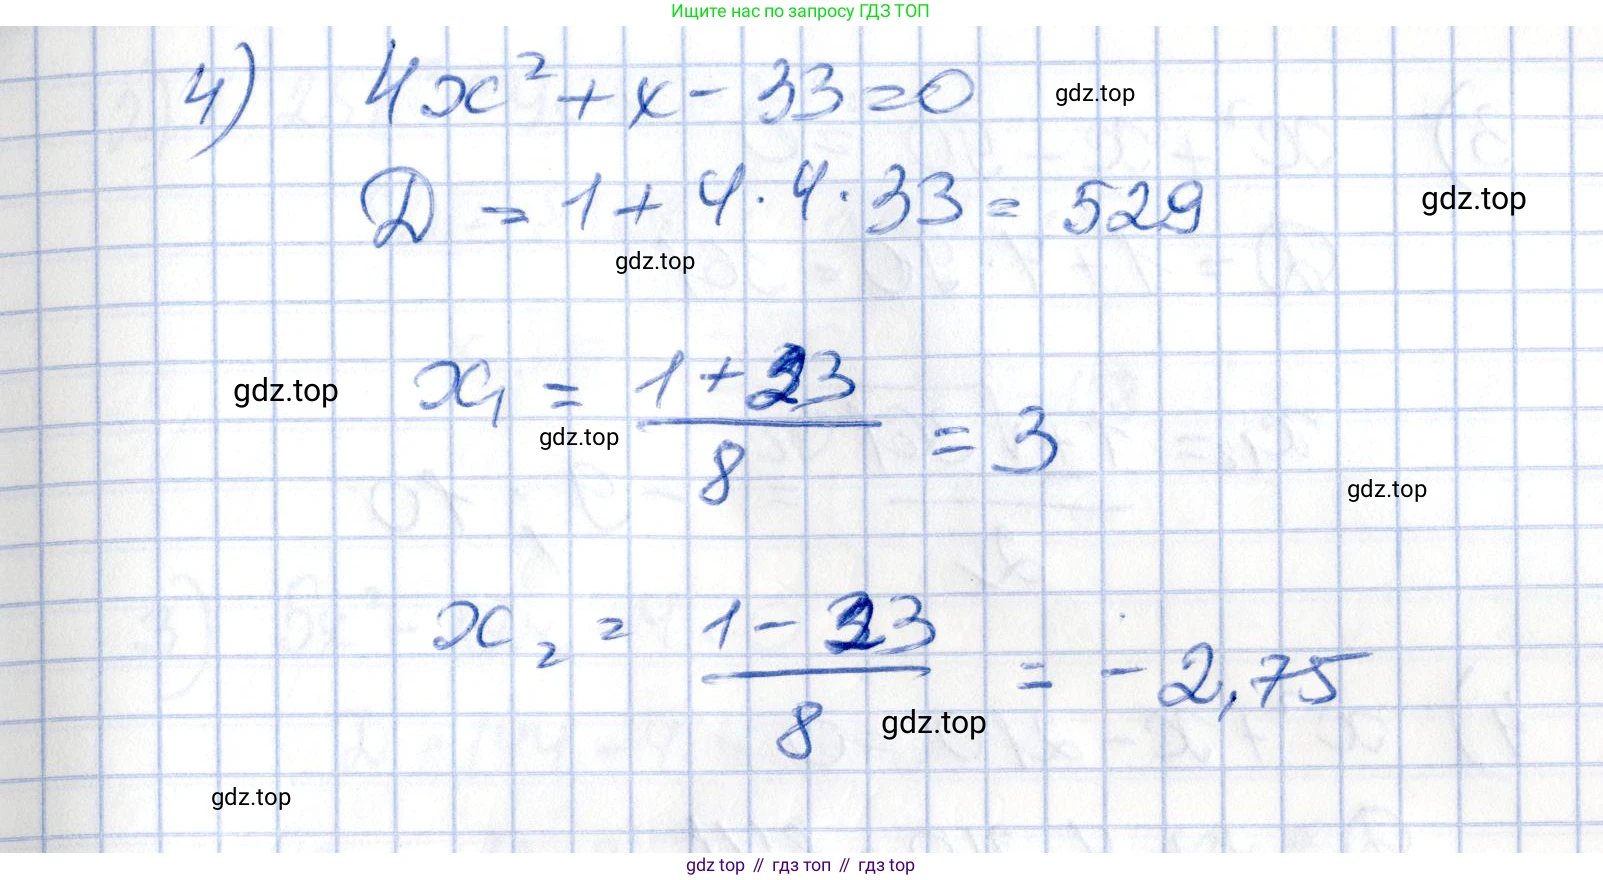 Ищите нас по запросу ГДЗ ТОП
4) 4x² + x - 33 = 0
gdz.top
D = 1 + 4 · 4 · 33 = 529
gdz.top
gdz.top
x₁ = (1 + 23)/8 = 3
gdz.top
gdz.top
gdz.top
x₂ = (1 - 23)/8 = -2,75
gdz.top
gdz.top
gdz top // гдз топ // гдз top